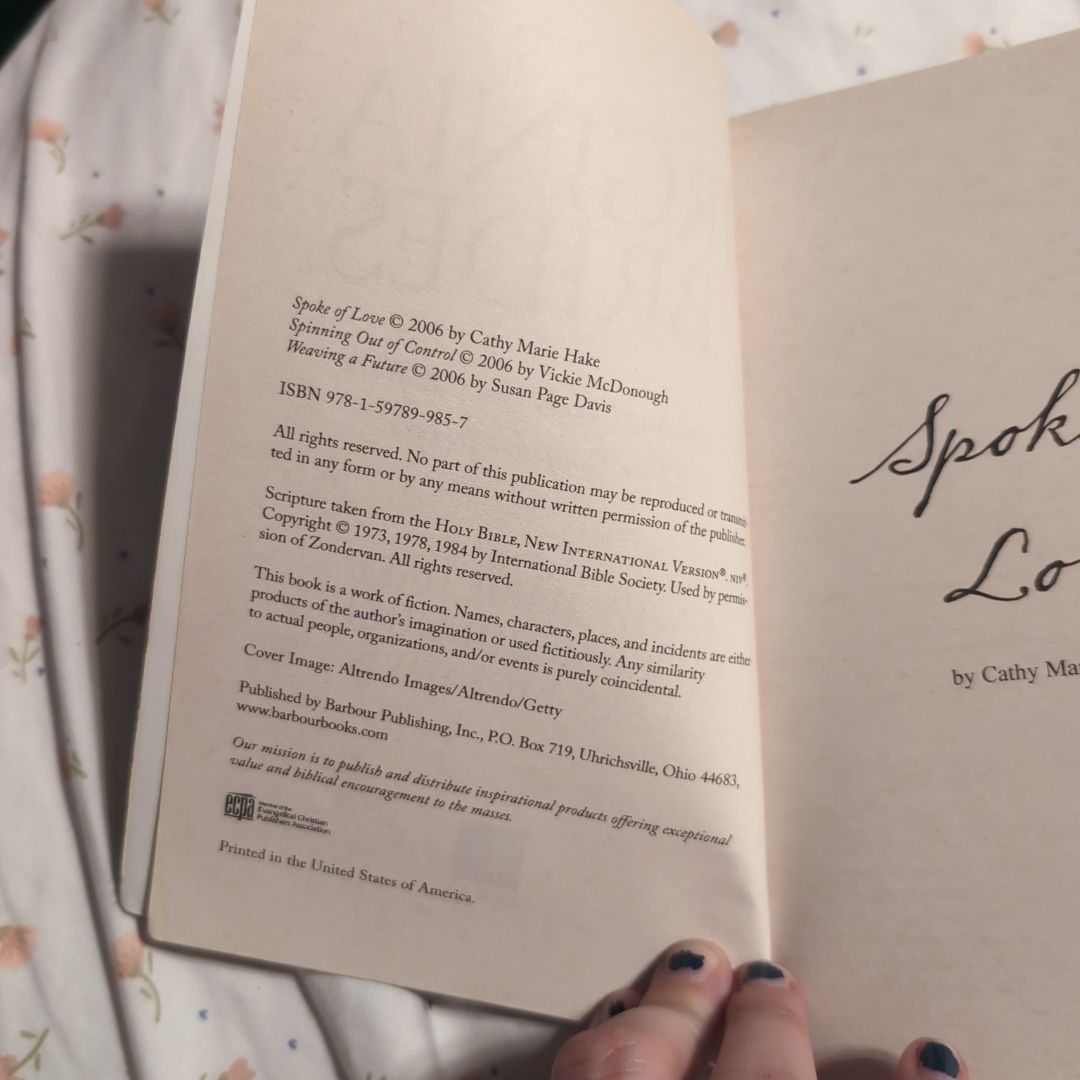 Spoke of Love © 2006 by Cathy Marie Hake
Spinning Out of Control © 2006 by Vickie McDonough
Weaving a Future © 2006 by Susan Page Davis
ISBN 978-1-59789-985-7
All rights reserved. No part of this publication may be reproduced or transmit-
ted in any form or by any means without written permission of the publisher.
Scripture taken from the HOLY BIBLE, NEW INTERNATIONAL VERSION®. NIV®.
Copyright © 1973, 1978, 1984 by International Bible Society. Used by permis-
sion of Zondervan. All rights reserved.
This book is a work of fiction. Names, characters, places, and incidents are either
products of the author's imagination or used fictitiously. Any similarity
to actual people, organizations, and/or events is purely coincidental.
Cover Image: Altrendo Images/Altrendo/Getty
Published by Barbour Publishing, Inc., P.O. Box 719, Uhrichsville, Ohio 44683,
www.barbourbooks.com
Our mission is to publish and distribute inspirational products offering exceptional
value and biblical encouragement to the masses.
ecpa
Member of the
Evangelical Christian
Publishers Association
Printed in the United States of America.
Spok
Lo
by Cathy Mar